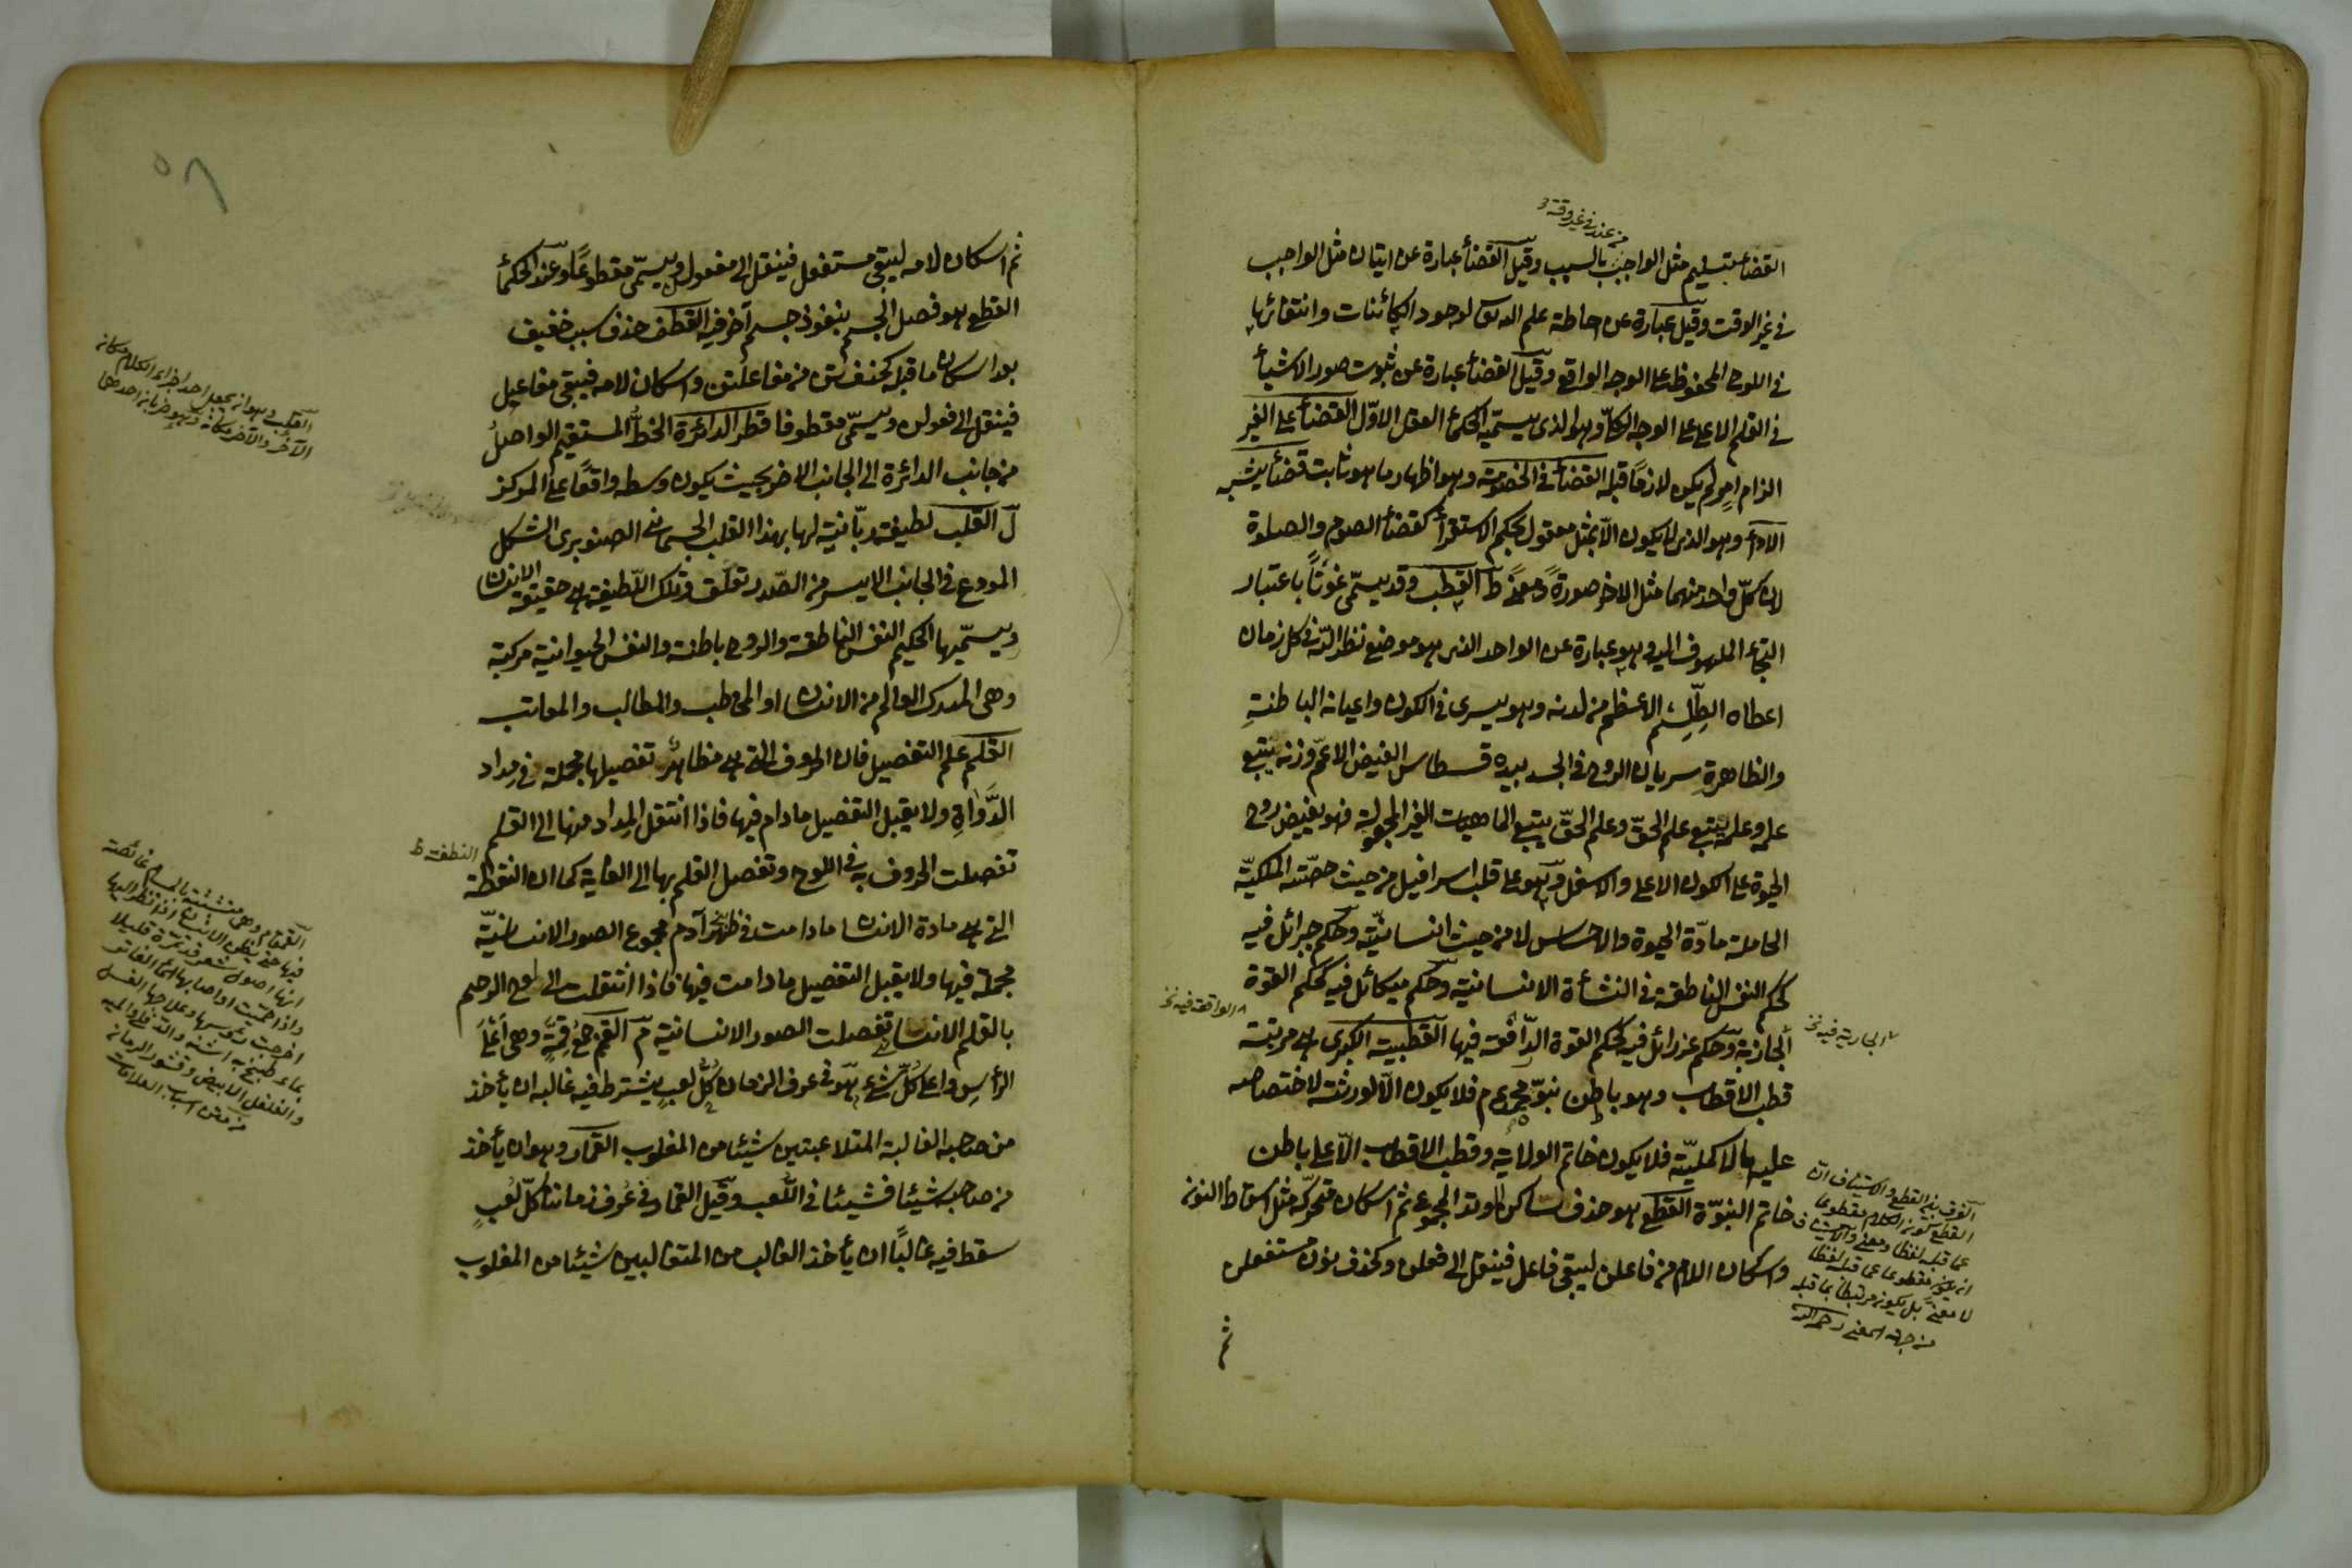 من عنده فى غير وقته
القضأ بتسليم مثل الواجب بالسبب وقيل القضأ عبارة عن ايتان مثل الواجب
فى غير الوقت وقيل عبارة عن احاطة علم الله تعالى لوجود الكائنات وانتقائها
فى اللوح المحفوظ على الوجه الواقع وقيل القضأ عبارة عن ثبوت صور الاشيأ
فى القلم الاعلى على الوجه الكلّى وهو الذى يسمّيه الحكمأ العقل الاوّل القضأ على الغير
الزام امر لم يكن لازمًا قبله القضأ فى الخصومة وهو اظهار ما هو ثابت قضأ يشبه
الادأ وهو الذى لا يكون الّا بمثل معقول بحكم الاستقرأ كقضأ الصوم والصلوة
لان كلّ واحد منهما مثل الاخر صورةً ومعنًى ط القطب وقد يسمّى غوثاً باعتبار
التجأ الملهوف اليه وهو عبارة عن الواحد الذى هو موضع نظر اللّه فى كل زمان
اعطاه الطِلَّسِم الاعظم من لدنه وهو يسرى فى الكون واعيانه الباطنةِ
والظاهرةِ سريان الروح فى الجسد بيده قسطاس الفيض الاعمّ وزنه يتبع
علمه وعلمه يتبع علم الحقّ وعلم الحقّ يتبع الماهيات الغير المجعولة فهو يفيض روح
الحيوة على الكون الاعلى والاسفل وهو على قلب اسرافيل من حيث حصّته الملكيّة
الحاملة مادّة الحيوة والاحساس لا من حيث انسانيّته وحكم جبرائل فيه
كحكم النفس الناطقة فى النشأة الانسانية وحكم ميكائل فيه كحكم القوة
الجاذبة وحكم عزرائل فيه كحكم القوة الدّافعة فيها القطبية الكبرى هى مرتبة
قطب الاقطاب وهو باطن نبوّة محمد عم فلا يكون الّا لورثته لاختصاصه
عليه بالاكمليّة فلا يكون خاتم الولاية وقطب الاقطاب الّا على باطن
خاتم النبوّة القطع هو حذف ساكن الوتد المجموع ثم اسكان متحركه مثل اسقاط النون
واسكان اللام من فاعلن ليبقى فاعل فينقل الى فعلن وكحذف نون مستفعلن
ثم
الجارية فيه نخ
الواقعة فيه نخ
الفرق بين القطع والاستيناف انّ
القطع يكون الكلام مقطوعا
عما قبله لفظا ومعنى والاستيناف
ان يكون مقطوعا عما قبله لفظا
لا معنىً بل يكون مرتبطا بما قبله
من جهة المعنى رحمه الله
٥٨
ثم اسكان لامه ليبقى مستفعل فينقل الى مفعولن ويسمّى مقطوعًا وعند الحكمأ
القطع هو فصل الجسم بنفوذ جسم آخر فيه القطف حذف سبب خفيف
بعد اسكان ما قبله كحذف تن من مفاعلتن واسكان لامه فيبقى مفاعل
فينقل الى فعولن ويسمّى مقطوفا قطر الدائرة الخطّ المستقيم الواصل
من جانب الدائرة الى الجانب الاخر بحيث يكون وسطه واقعًا على المركز
ل القلب لطيفة ربّانية لها بهذا القلب الجسمانى الصنوبرى الشكل
المودع فى الجانب الايسر من الصّدر تعلّق وتلك اللّطيفة هى حقيقة الانسان
ويسمّيها الحكيم النفس الناطقة والروح باطنة والنفس الحيوانية مركبة
وهى المدرك العالم من الانسان او المخاطب والمطالب والمعاتب
القلم علم التفصيل فان الحروف التى هى مظاهر تفصيلها مجملة فى مداد
الدَّوَاةِ ولا يقبل التفصيل ما دام فيها فاذا انتقل المداد منها الى القلم
تفصلت الحروف به فى اللوح وتفصل القلم بها الى الغاية كما ان النقطة
التى هى مادة الانسان ما دامت فى ظهر آدم مجموع الصور الانسانيّة
مجملة فيها ولا يقبل التفصيل ما دامت فيها فاذا انتقلت الى لوح الرحم
بالقلم الانسانى تفصلت الصور الانسانية م القمم جمع قِمّة وهى اعلى
الرأس واعلى كلّ شئ هو فى عرف الزمان كلّ لعب يشترط فيه غالبه ان يأخذ
من صاحبه الغالبة المتلاعبتين شيئا من المغلوب القمار وهو ان يأخذ
من صاحبه شيئا فشيئا فى اللّعب وقيل القمار فى عُرف زماننا كلّ لعبٍ
سقط فيه غالبًا ان يأخذ الغالب من المتغالبين شيئا من المغلوب
القلب هو ان يجعل احد اجزاء الكلام مكانه
الآخر والآخر مكانه
النطفة ظ